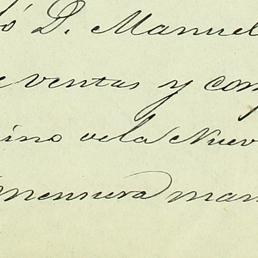 ó D. Manuel
e ventas y com
ino de la Nuev
mensura man